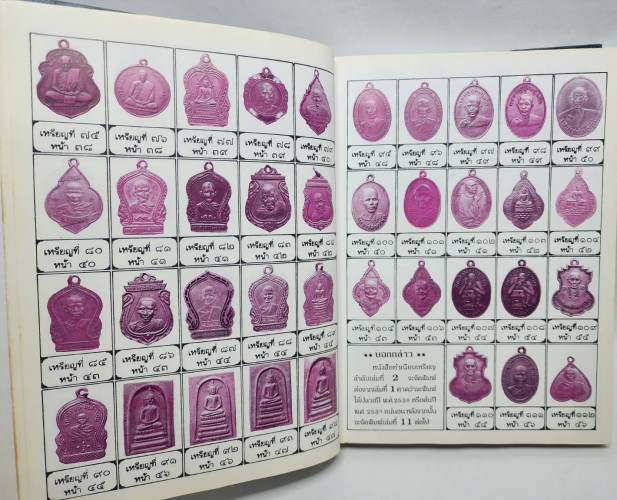 เหรียญที่ ๗๕
หน้า ๓๘
เหรียญที่ ๗๖
หน้า ๓๘
เหรียญที่ ๗๗
หน้า ๓๙
เหรียญที่ ๗๘
หน้า ๓๙
เหรียญที่ ๗๙
หน้า ๔๐
เหรียญที่ ๘๐
หน้า ๔๐
เหรียญที่ ๘๑
หน้า ๔๑
เหรียญที่ ๘๒
หน้า ๔๑
เหรียญที่ ๘๓
หน้า ๔๒
เหรียญที่
หน้า ๔๒
เหรียญที่ ๘๕
หน้า ๔๓
เหรียญที่ ๘๖
หน้า ๔๓
เหรียญที่ ๘๗
หน้า ๔๔
เหรียญที่ ๘๘
หน้า ๔๔
เหรียญที่ ๘๙
เหรียญที่ ๙๐
หน้า ๔๕
เหรียญที่ ๙๑
หน้า ๔๖
เหรียญที่ ๙๒
หน้า ๔๖
เหรียญที่ ๙๓
หน้า ๔๗
เหรียญที่ ๙๕
หน้า ๔๘
เหรียญที่ ๙๖
หน้า ๔๘
เหรียญที่ ๙๗
หน้า ๔๙
เหรียญที่ ๙๘
หน้า ๔๙
เหรียญที่ ๙๙
หน้า ๕๐
เหรียญที่ ๑๐๐
หน้า ๕๐
เหรียญที่ ๑๐๑
หน้า ๕๑
เหรียญที่ ๑๐๒
หน้า ๕๑
เหรียญที่ ๑๐๓
หน้า ๕๒
เหรียญที่ ๑๐๔
หน้า ๕๒
เหรียญที่ ๑๐๕
หน้า ๕๓
เหรียญที่ ๑๐๖
หน้า ๕๓
เหรียญที่ ๑๐๗
หน้า ๕๔
เหรียญที่ ๑๐๘
หน้า ๕๔
เหรียญที่ ๑๐๙
หน้า ๕๕
** บอกกล่าว **
หนังสือทำเนียบเหรียญ
ลำดับเล่มที่ 2 จะจัดพิมพ์
ต่อจากเล่มที่ 1 คาดว่าจะพิมพ์
ได้ปลายปี พ.ศ. หรือต้นปี
พ.ศ. แน่นอน หลังจากนั้น
จะจัดพิมพ์เล่มที่ 11 ต่อไป
เหรียญที่ ๑๑๐
หน้า ๕๕
เหรียญที่ ๑๑๑
หน้า ๕๖
เหรียญที่ ๑๑๒
หน้า ๕๖